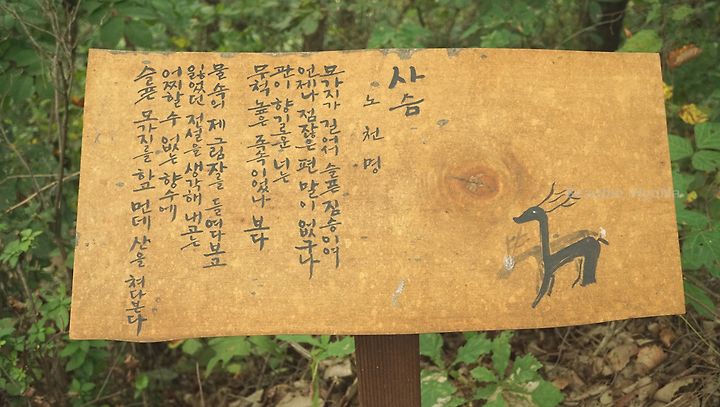 사슴
노천명
모가지가 길어서 슬픈 짐승이여
언제나 점잖은 편 말이 없구나
관이 향기로운 너는
무척 높은 족속이었나 보다
물 속의 제 그림자를 들여다보고
잃었던 전설을 생각해 내고는
어찌할 수 없는 향수에
슬픈 모가지를 하고 먼데 산을 쳐다본다